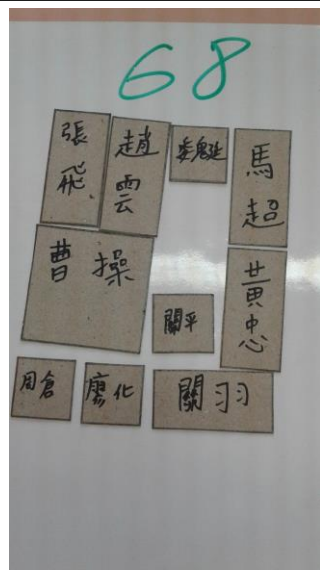 68
張飛
趙雲
魏延
馬超
曹操
黃忠
關平
周倉
廖化
關羽